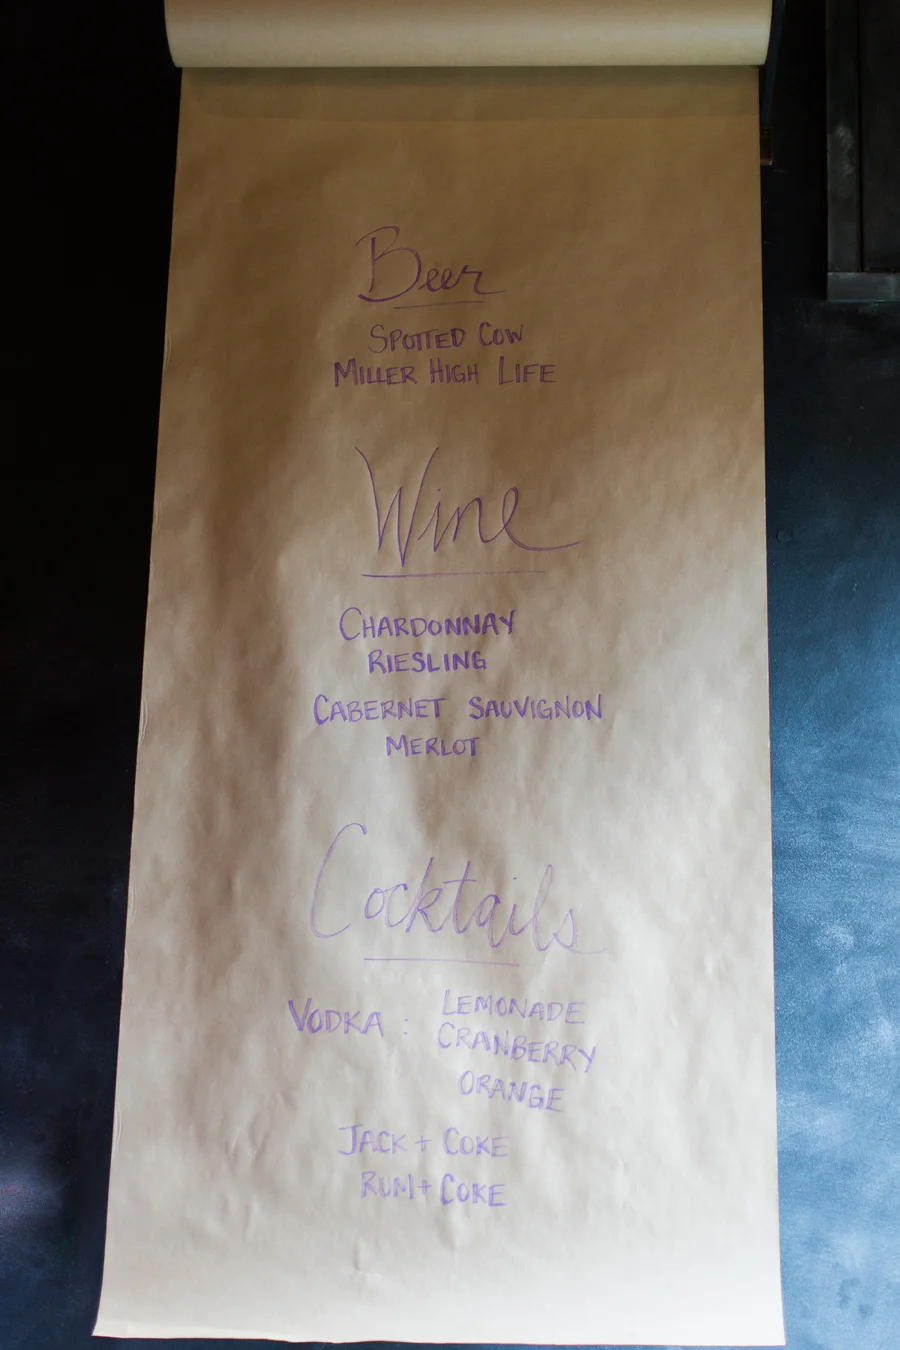 Beer
SPOTTED COW
MILLER HIGH LIFE
Wine
CHARDONNAY
RIESLING
CABERNET SAUVIGNON
MERLOT
Cocktails
VODKA : LEMONADE
CRANBERRY
ORANGE
JACK + COKE
RUM + COKE